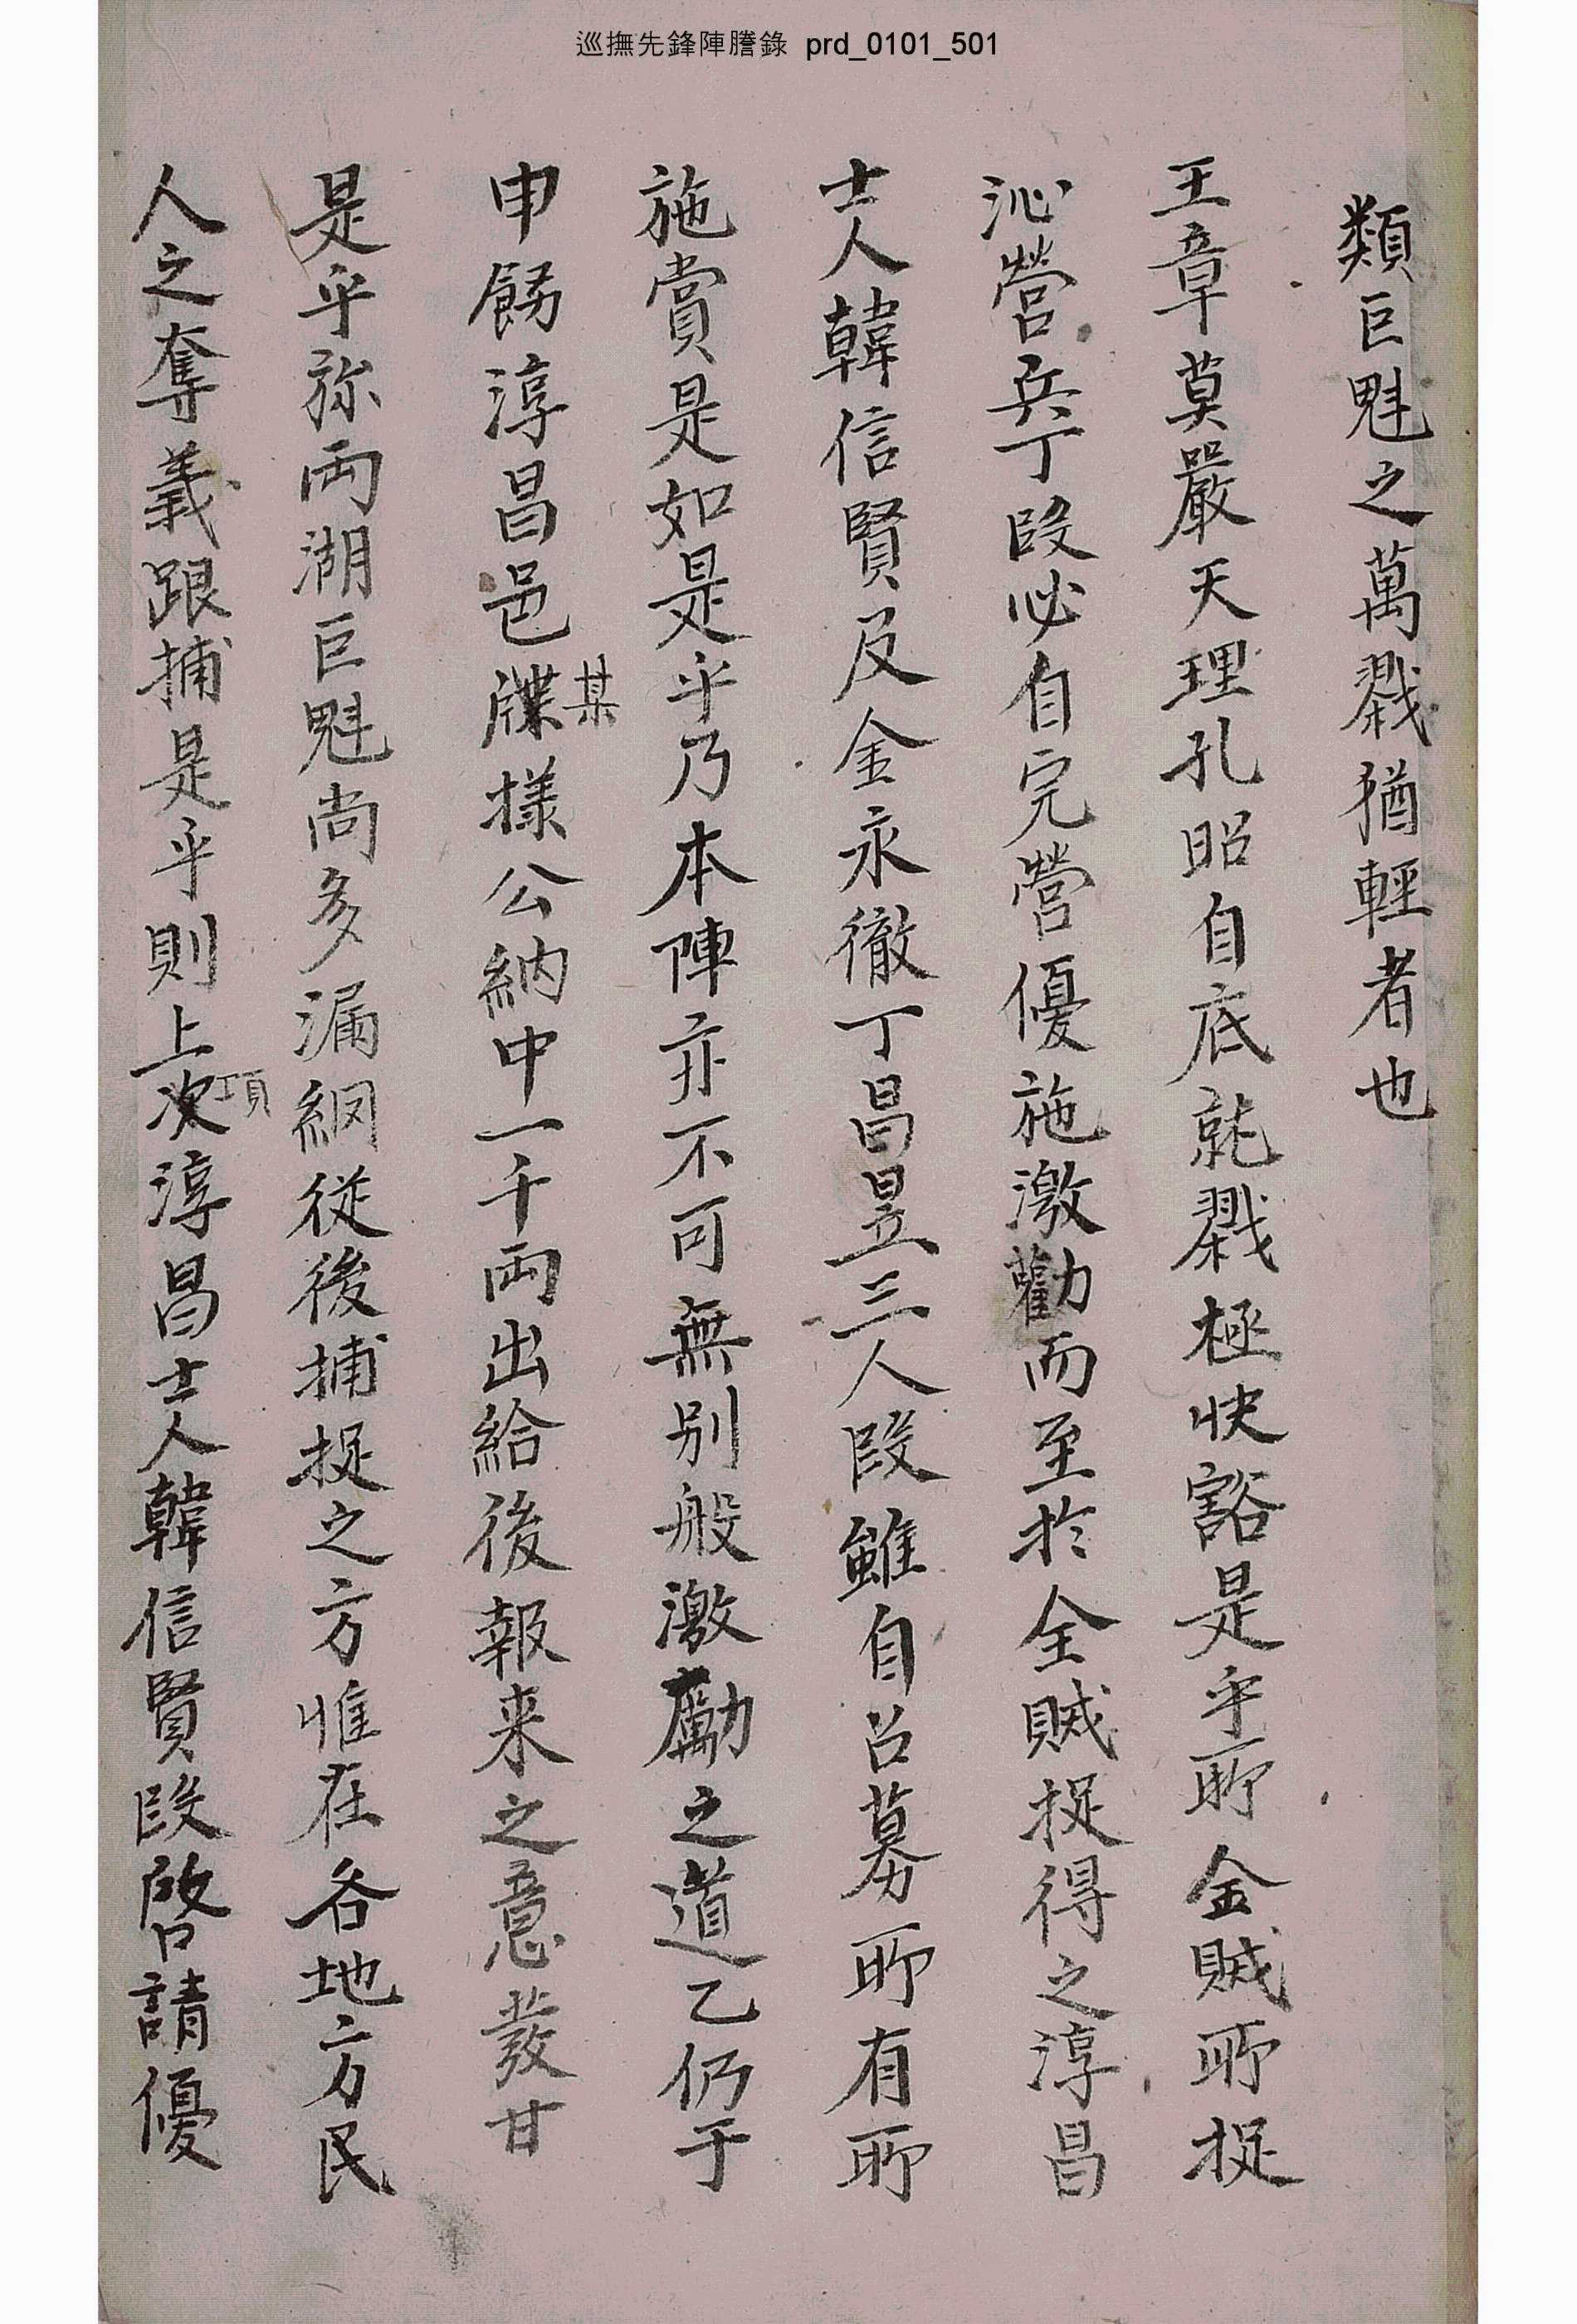 巡撫先鋒陣謄錄 prd_0101_501
類巨魁之萬戮猶輕者也
王章莫嚴天理孔昭自底就戮極快豁是乎所金賊所捉
沁營兵丁段必自完營優施激勸而至於全賊捉得之淳昌
士人韓信賢及金永徹丁昌昱三人段雖自召募所有所
施賞是如是乎乃本陣亦不可無別般激勵之道乙仍于
申飭淳昌邑
某
樣公納中一千兩出給後報来之意發甘
是乎弥兩湖巨魁尚多漏網從後捕捉之方惟在各地方民
人之奪義跟捕是乎則上
項
淳昌士人韓信賢段啓請優